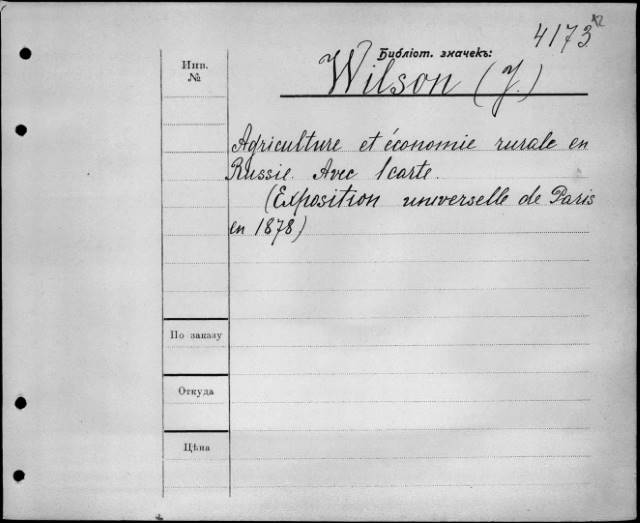 4173
Библіот. значекъ:
Wilson (J.)
Инв.
№
Agriculture et économie rurale en
Russie. Avec 1 carte.
(Exposition universelle de Paris
en 1878)
По заказу
Откуда
Цѣна